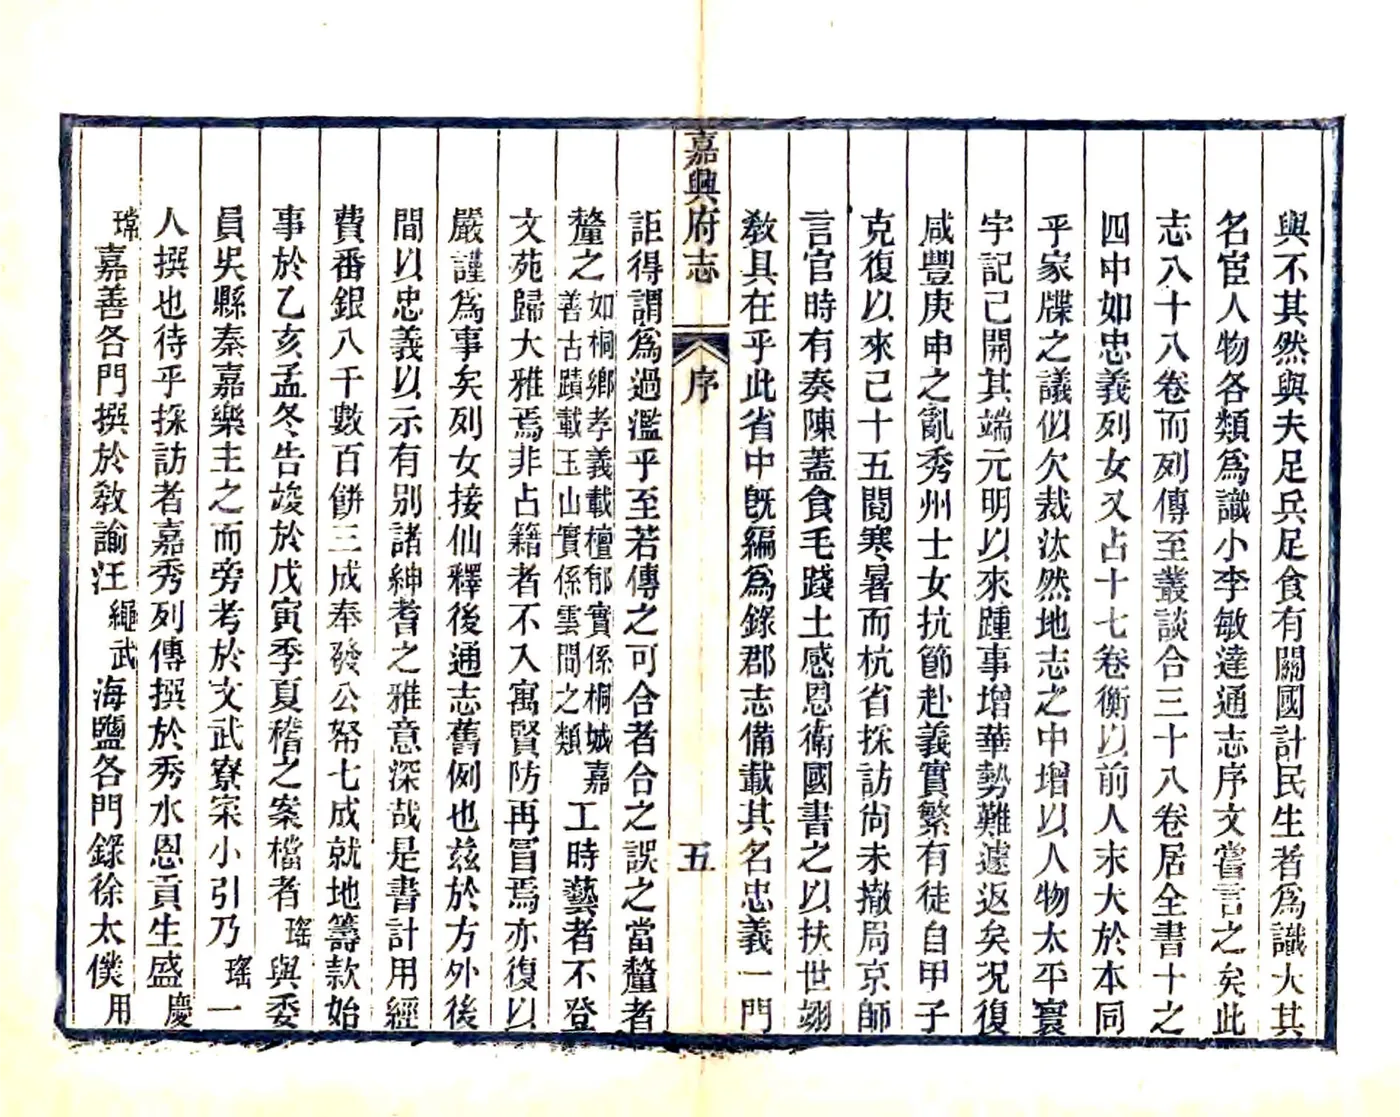 與不其然與夫足兵足食有關國計民生者爲識大其
名宦人物各類爲識小李敏達通志序文嘗言之矣此
志八十八卷而列傳至叢談合三十八卷居全書十之
四中如忠義列女又占十七卷衡以前人末大於本同
乎家牒之議似欠裁汰然地志之中增以人物太平寰
宇記已開其端元明以來踵事增華勢難遽返矣况復
咸豐庚申之亂秀州士女抗節赴義實繁有徒自甲子
克復以來已十五閱寒暑而杭省採訪尙未撤局京師
言官時有奏陳蓋食毛踐土感恩衛國書之以扶世翊
敎具在乎此省中旣編爲錄郡志備載其名忠義一門
嘉興府志 序 五
詎得謂爲過濫乎至若傳之可合者合之誤之當釐者
釐之如桐鄉孝義載檀郁實係桐城嘉善古蹟載玉山實係雲間之類工時藝者不登
文苑歸大雅焉非占籍者不入寓賢防再冒焉亦復以
嚴謹爲事矣列女接仙釋後通志舊例也茲於方外後
間以忠義以示有别諸紳耆之雅意深哉是書計用經
費番銀八千數百餅三成奉發公帑七成就地籌款始
事於乙亥孟冬告竣於戊寅季夏稽之案檔者瑤與委
員吳縣秦嘉樂主之而旁考於文武寮寀小引乃瑤一
人撰也待乎採訪者嘉秀列傳撰於秀水恩貢生盛慶
瑺嘉善各門撰於敎諭汪繩武海鹽各門錄徐太僕用